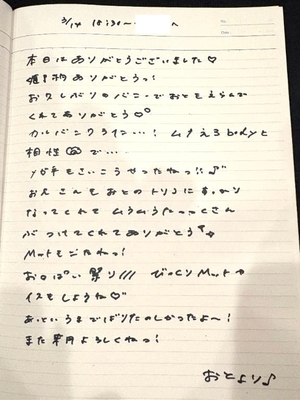 3/14 18:30〜 へ
No.
Date
本日はありがとうございました♡
ありがとうっ!
お久しぶりのバニーでおとをえらんで
くれてありがとう♡
カルバンクライン…! bodyと
相性◎で…
さいこうやったねっ!!♪
お兄さんもおとのトリコにすっかり
なってくれて ムラムラたっくさん
ぶつけてくれてありがとう
Mattもごたねっ!
おっぱい祭り/// びっくりMattの
イスをしようね♡
あっというまでばりたのしかったよ〜!
また来月よろしくねっ!
おとより♪